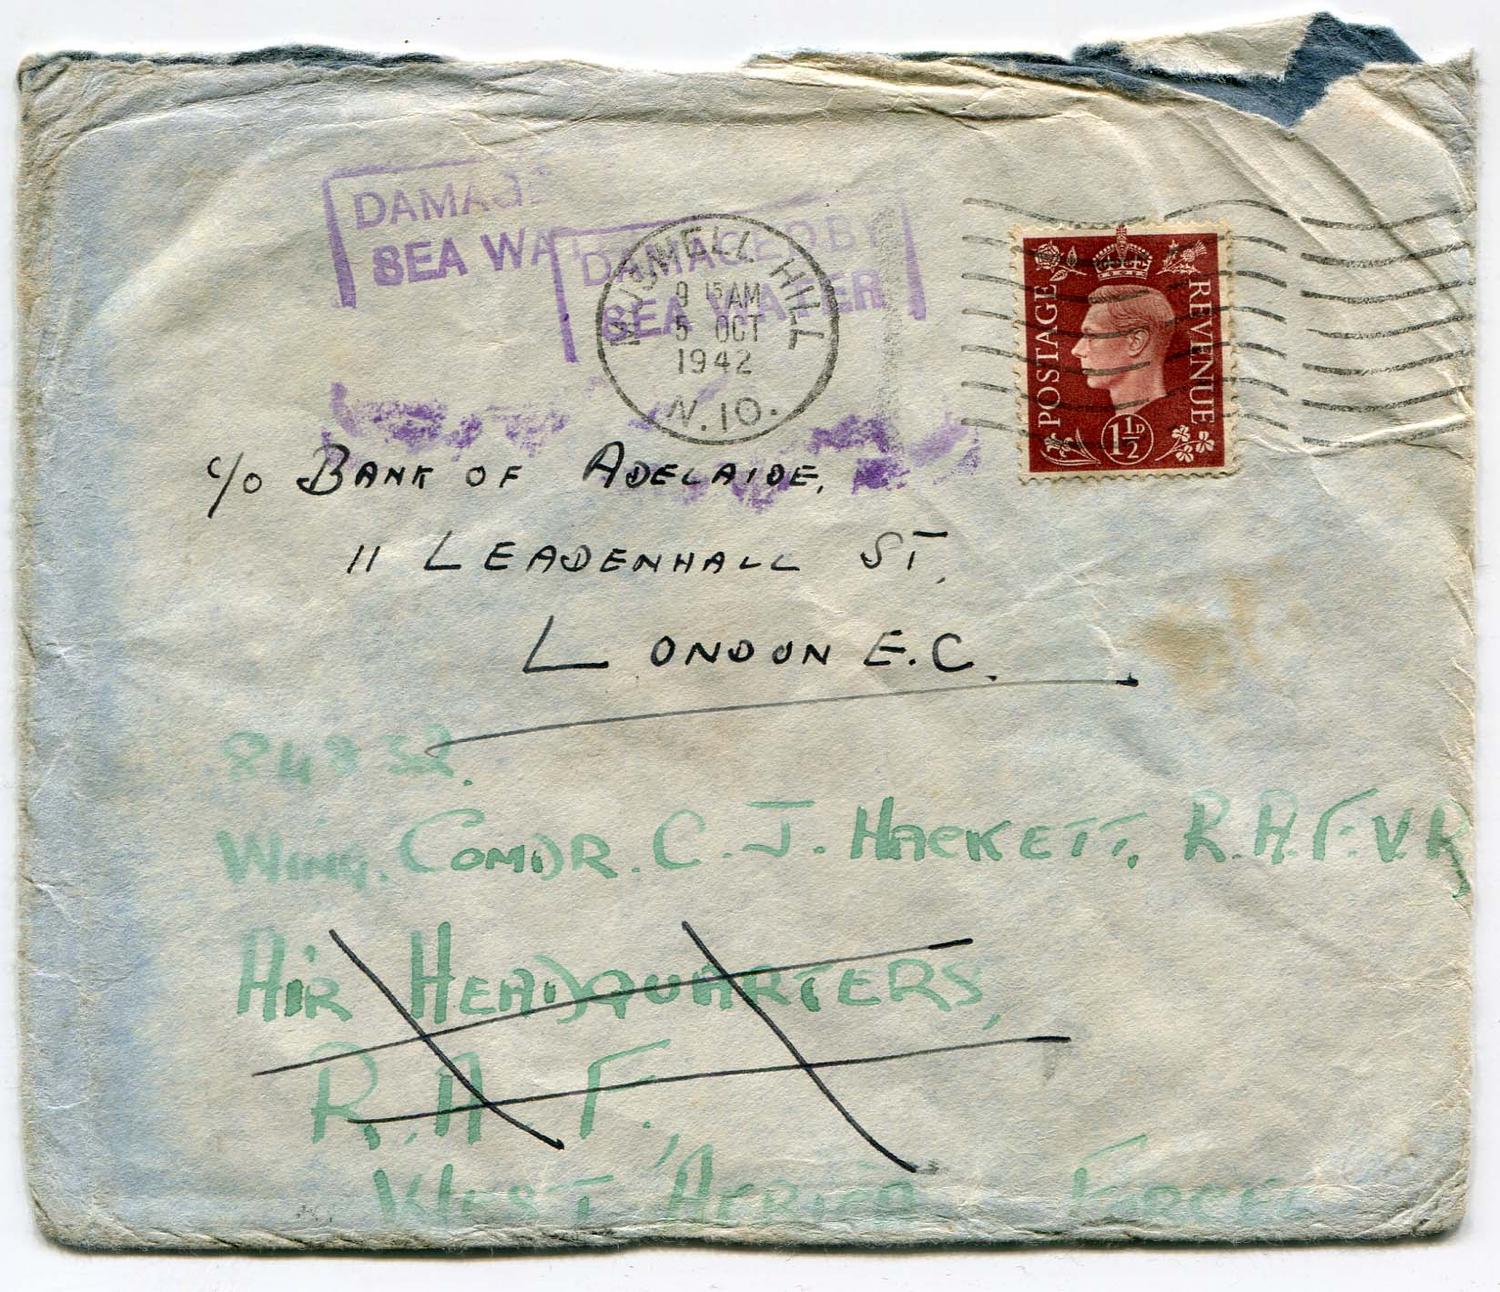 DAMAGE
SEA WA
DAMAGED BY
SEA WATER
MUSWELL HILL
9 15 AM
5 OCT
1942
N.10.
POSTAGE
REVENUE
1½D
c/o BANK OF ADELAIDE,
11 LEADENHALL ST.
LONDON E.C.
WING. COMDR. C. J. HACKETT, R.A.F.V.R
AIR HEADQUARTERS,
R.A.F.,
WEST AFRICA FORCES